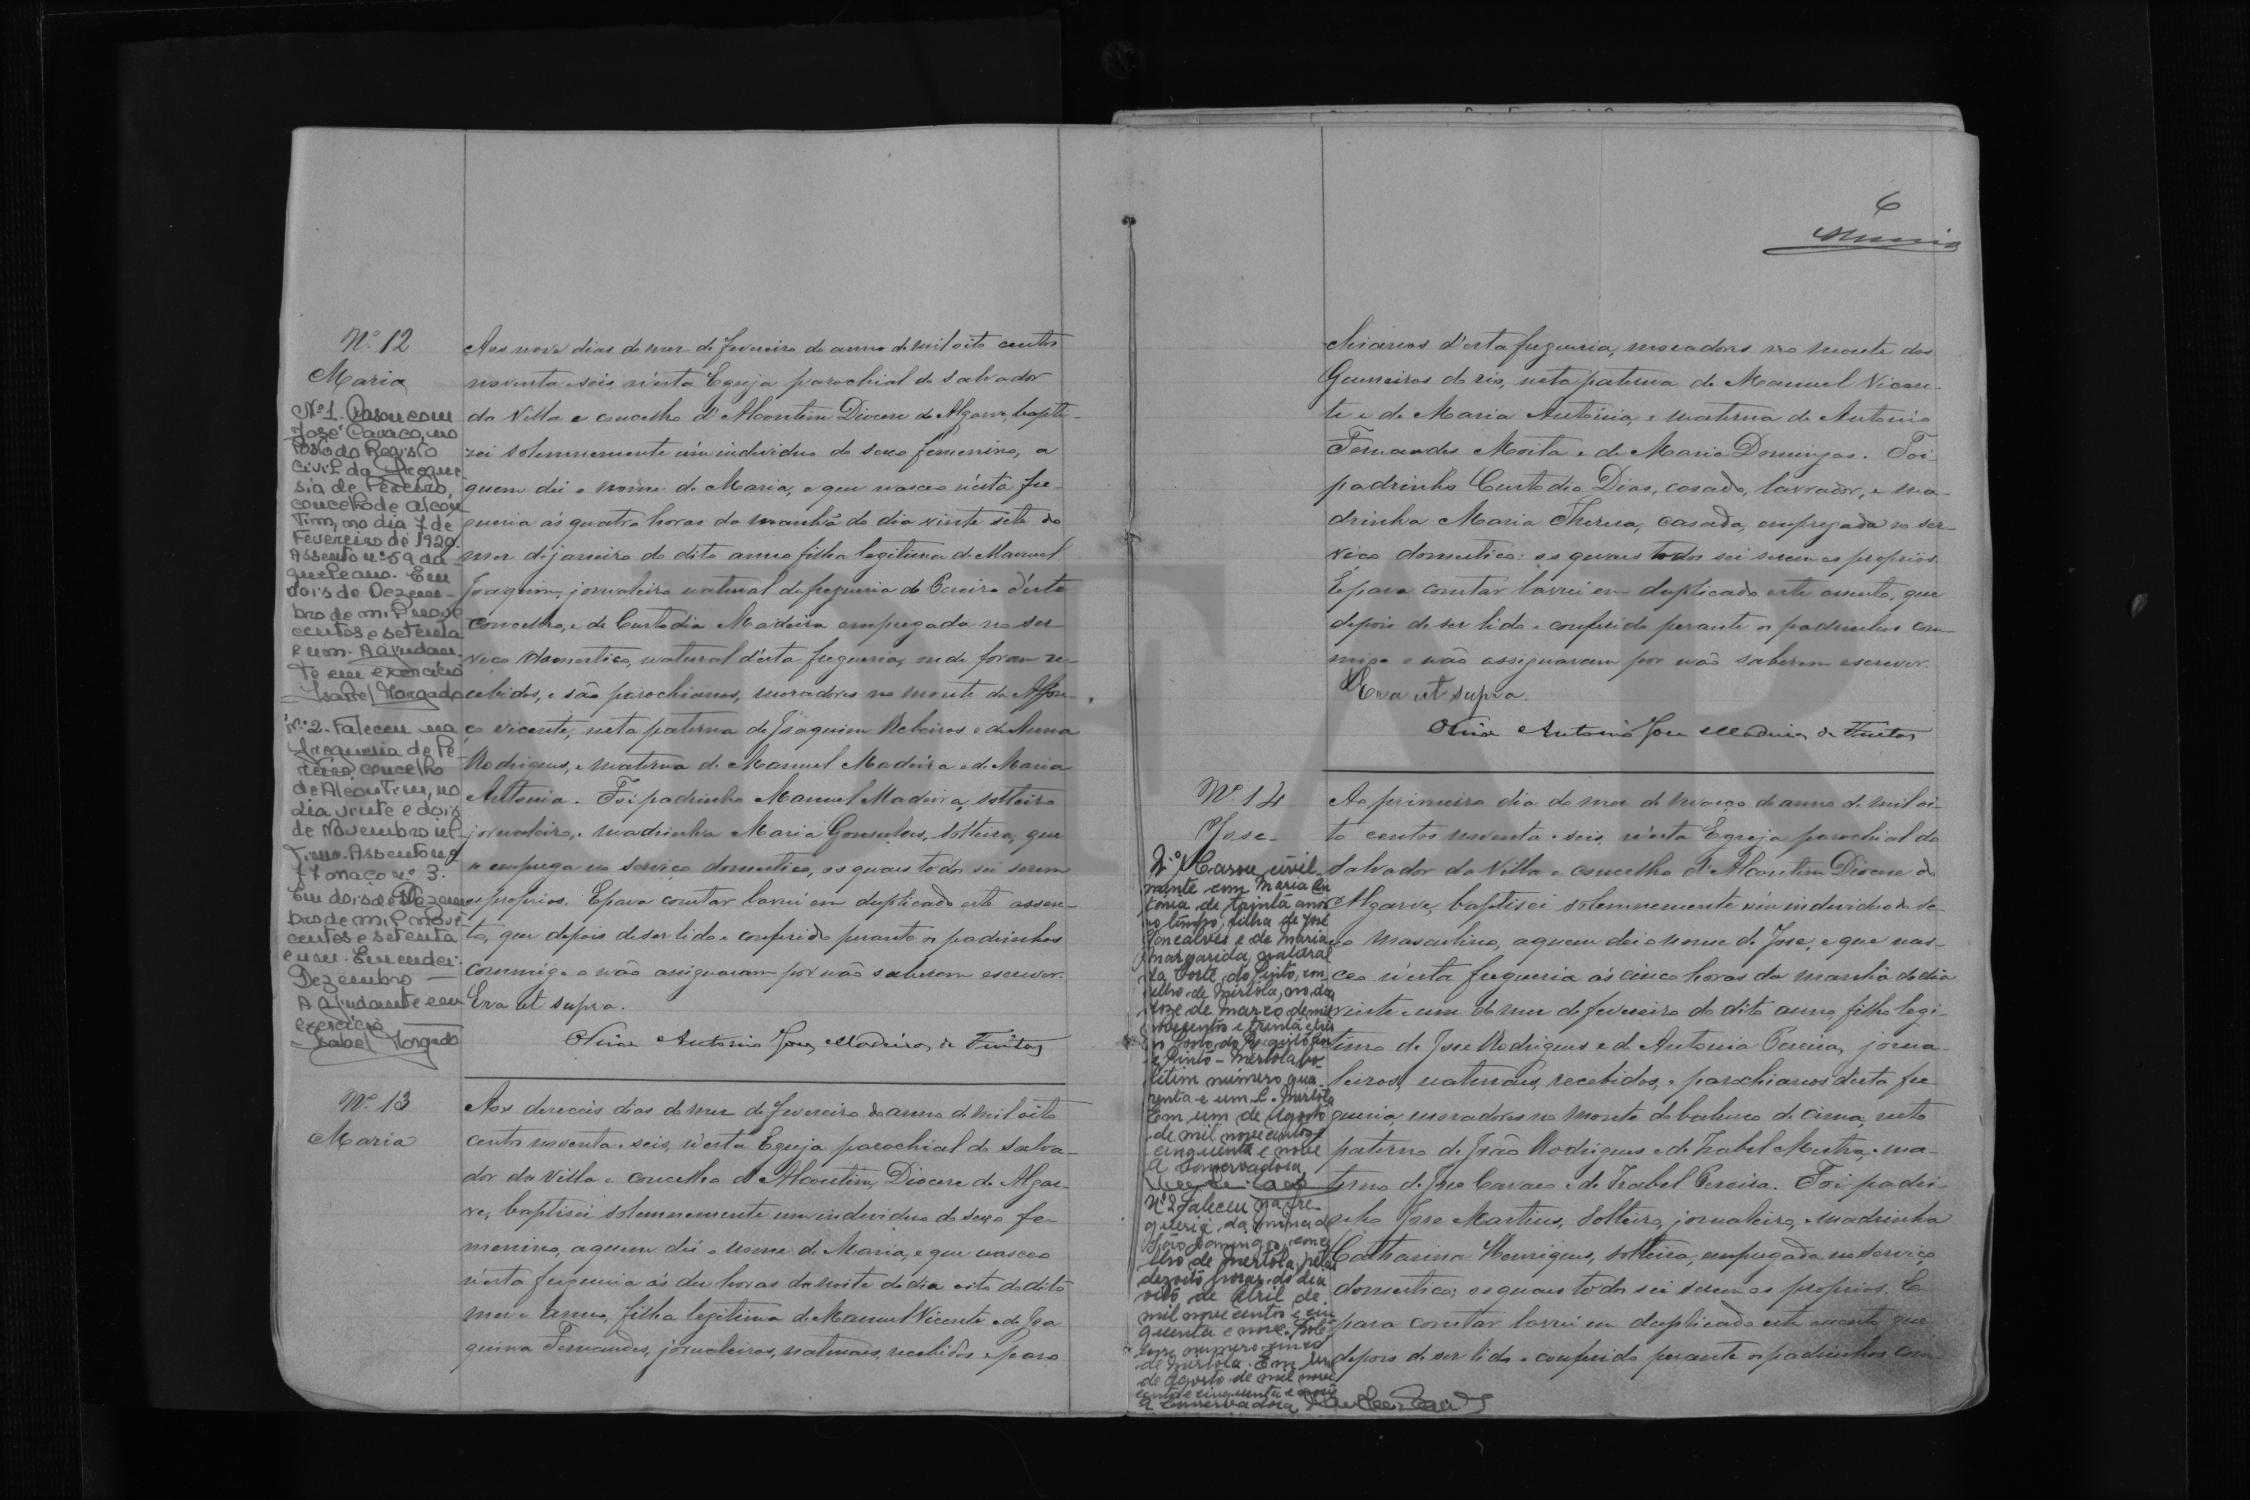 Nº 12
Maria
Nº 1. Casou com
José Cavaco, no
Posto do Registo
Civil da Fregue
sia de Pereiro,
concelho de Alcou
tim, no dia 7 de
Fevereiro de 1920.
Assento nº 59 da
quele ano. Em
dois de Dezem-
bro de mil nove
centos e setenta
e um. A ajudan-
te em exercício
Isabel Morgado
Nº 2. Faleceu na
freguesia de Pe
reiro, concelho
de Alcoutim, no
dia vinte e dois
de Novembro úl
timo. Assento nº
maço nº 3.
Em dois de Dezem
bro de mil nove
centos e setenta
e um. Emendei:
Dezembro —
A ajudante em
exercício
Isabel Morgado
Aos nove dias do mez de fevereiro do anno de mil oito centos
noventa e seis n'esta Egreja parochial do Salvador
da Villa e concelho d'Alcoutim Diocese do Algarve, bapti-
sei solemnemente um individuo do sexo femenino, a
quem dei o nome de Maria, e que nasceo n'esta fre-
guesia ás quatro horas da manhã do dia vinte sete do
mez de janeiro do dito anno filha legitima de Manuel
Joaquim, jornaleiro natural da freguesia do Pereiro d'este
concelho, e de Custodia Madeira empregada no ser-
viço domestico, natural d'esta freguesia, onde foram re-
cebidos, e são parochianos, moradores no monte do Affon-
ço vicente, neta paterna de Joaquim Ribeiros e de Anna
Rodrigues, e materna de Manuel Madeira e de Maria
Antonia. Foi padrinho Manuel Madeira, solteiro
jornaleiro, e madrinha Maria Gonsalves, solteira, que
se emprega no serviço domestico, os quaes todos sei serem
os proprios. E para constar lavrei em duplicado este assen-
to, que depois de ser lido e conferido perante os padrinhos
commigo o não assignaram por não saberem escrever.
Era ut supra.
O Prior Antonio Jose Madeira de Freitas
Nº 13
Maria
Aos deseseis dias do mez de fevereiro do anno de mil oito
centos noventa e seis, n'esta Egreja parochial do Salva-
dor da Villa e concelho d'Alcoutim, Diocese do Algar-
ve, baptisei solemnemente um individuo do sexo fe-
menino, a quem dei o nome de Maria, e que nasceo
n'esta freguesia ás dez horas da noite do dia oito do dito
mez e anno, filha legitima de Manuel Vicente e de Joa
quina Fernandes, jornaleiros, naturaes, recebidos e paro
6
chianos d'esta freguesia, moradores no monte dos
Guerreiros do rio, neta paterna de Manuel Vicen-
te e de Maria Antonia, e materna de Antonio
Fernandes Moita e de Maria Domingas. Foi
padrinho Custodio Dias, casado, lavrador, e ma-
drinha Maria Thereza, casada, empregada no ser-
viço domestico: os quaes todos sei serem os proprios.
E para constar lavrei em duplicado este assento, que
depois de ser lido e conferido perante os padrinhos com-
migo o não assignaram por não saberem escrever.
Era ut supra.
O Prior Antonio Jose Madeira de Freitas
Nº 14
Jose
Nº 1 Casou civil
mente com Maria An
tónia de trinta anos
no tempo, filha de José
Gonçalves e de Maria
Margarida, natural
da Corte do Pinto, con
celho de Mertola, no dia
doze de março de mil
novecentos e trinta e três
no Posto do Registo Civ
e Pinto - Mertola, bo-
letim número qua-
renta e um C. Mertola
Em um de Agosto
de mil nove centos e
cinquenta e nove
A Conservadora
Nº 2 Faleceu na fre-
guesia da Mina de
São Domingos, conce
lho de Mertola, pelas
dezoito horas do dia
oito de Abril de
mil nove centos e cin
quenta e nove. Bole
tim número cinco
de Mertola. Em um
de Agosto de mil nove
centos e cinquenta e nove
A Conservadora
Ao primeiro dia do mez de março do anno de mil oi-
to centos noventa e seis, n'esta Egreja parochial do
Salvador da Villa e concelho d'Alcoutim Diocese do
Algarve, baptisei solemnemente um individuo do se-
xo masculino, a quem dei o nome de Jose, e que nas-
ceo n'esta freguesia ás cinco horas da manhã do dia
vinte e um do mez de fevereiro do dito anno, filho legi-
timo de Jose Rodrigues e de Antonia Pereira, jorna-
leiros, naturaes, recebidos, e parochianos desta fre
guesia, moradores no monte do balurco de cima, neto
paterno de João Rodrigues e de Izabel Mestra, e ma-
terno de Jose Cavaco e de Izabel Pereira. Foi padri-
nho Jose Martins, solteiro, jornaleiro, e madrinha
Catharina Henriques, solteira, empregada no serviço
domestico; os quaes todos sei serem os proprios. E
para constar lavrei em duplicado este assento, que
depois de ser lido e conferido perante os padrinhos com-